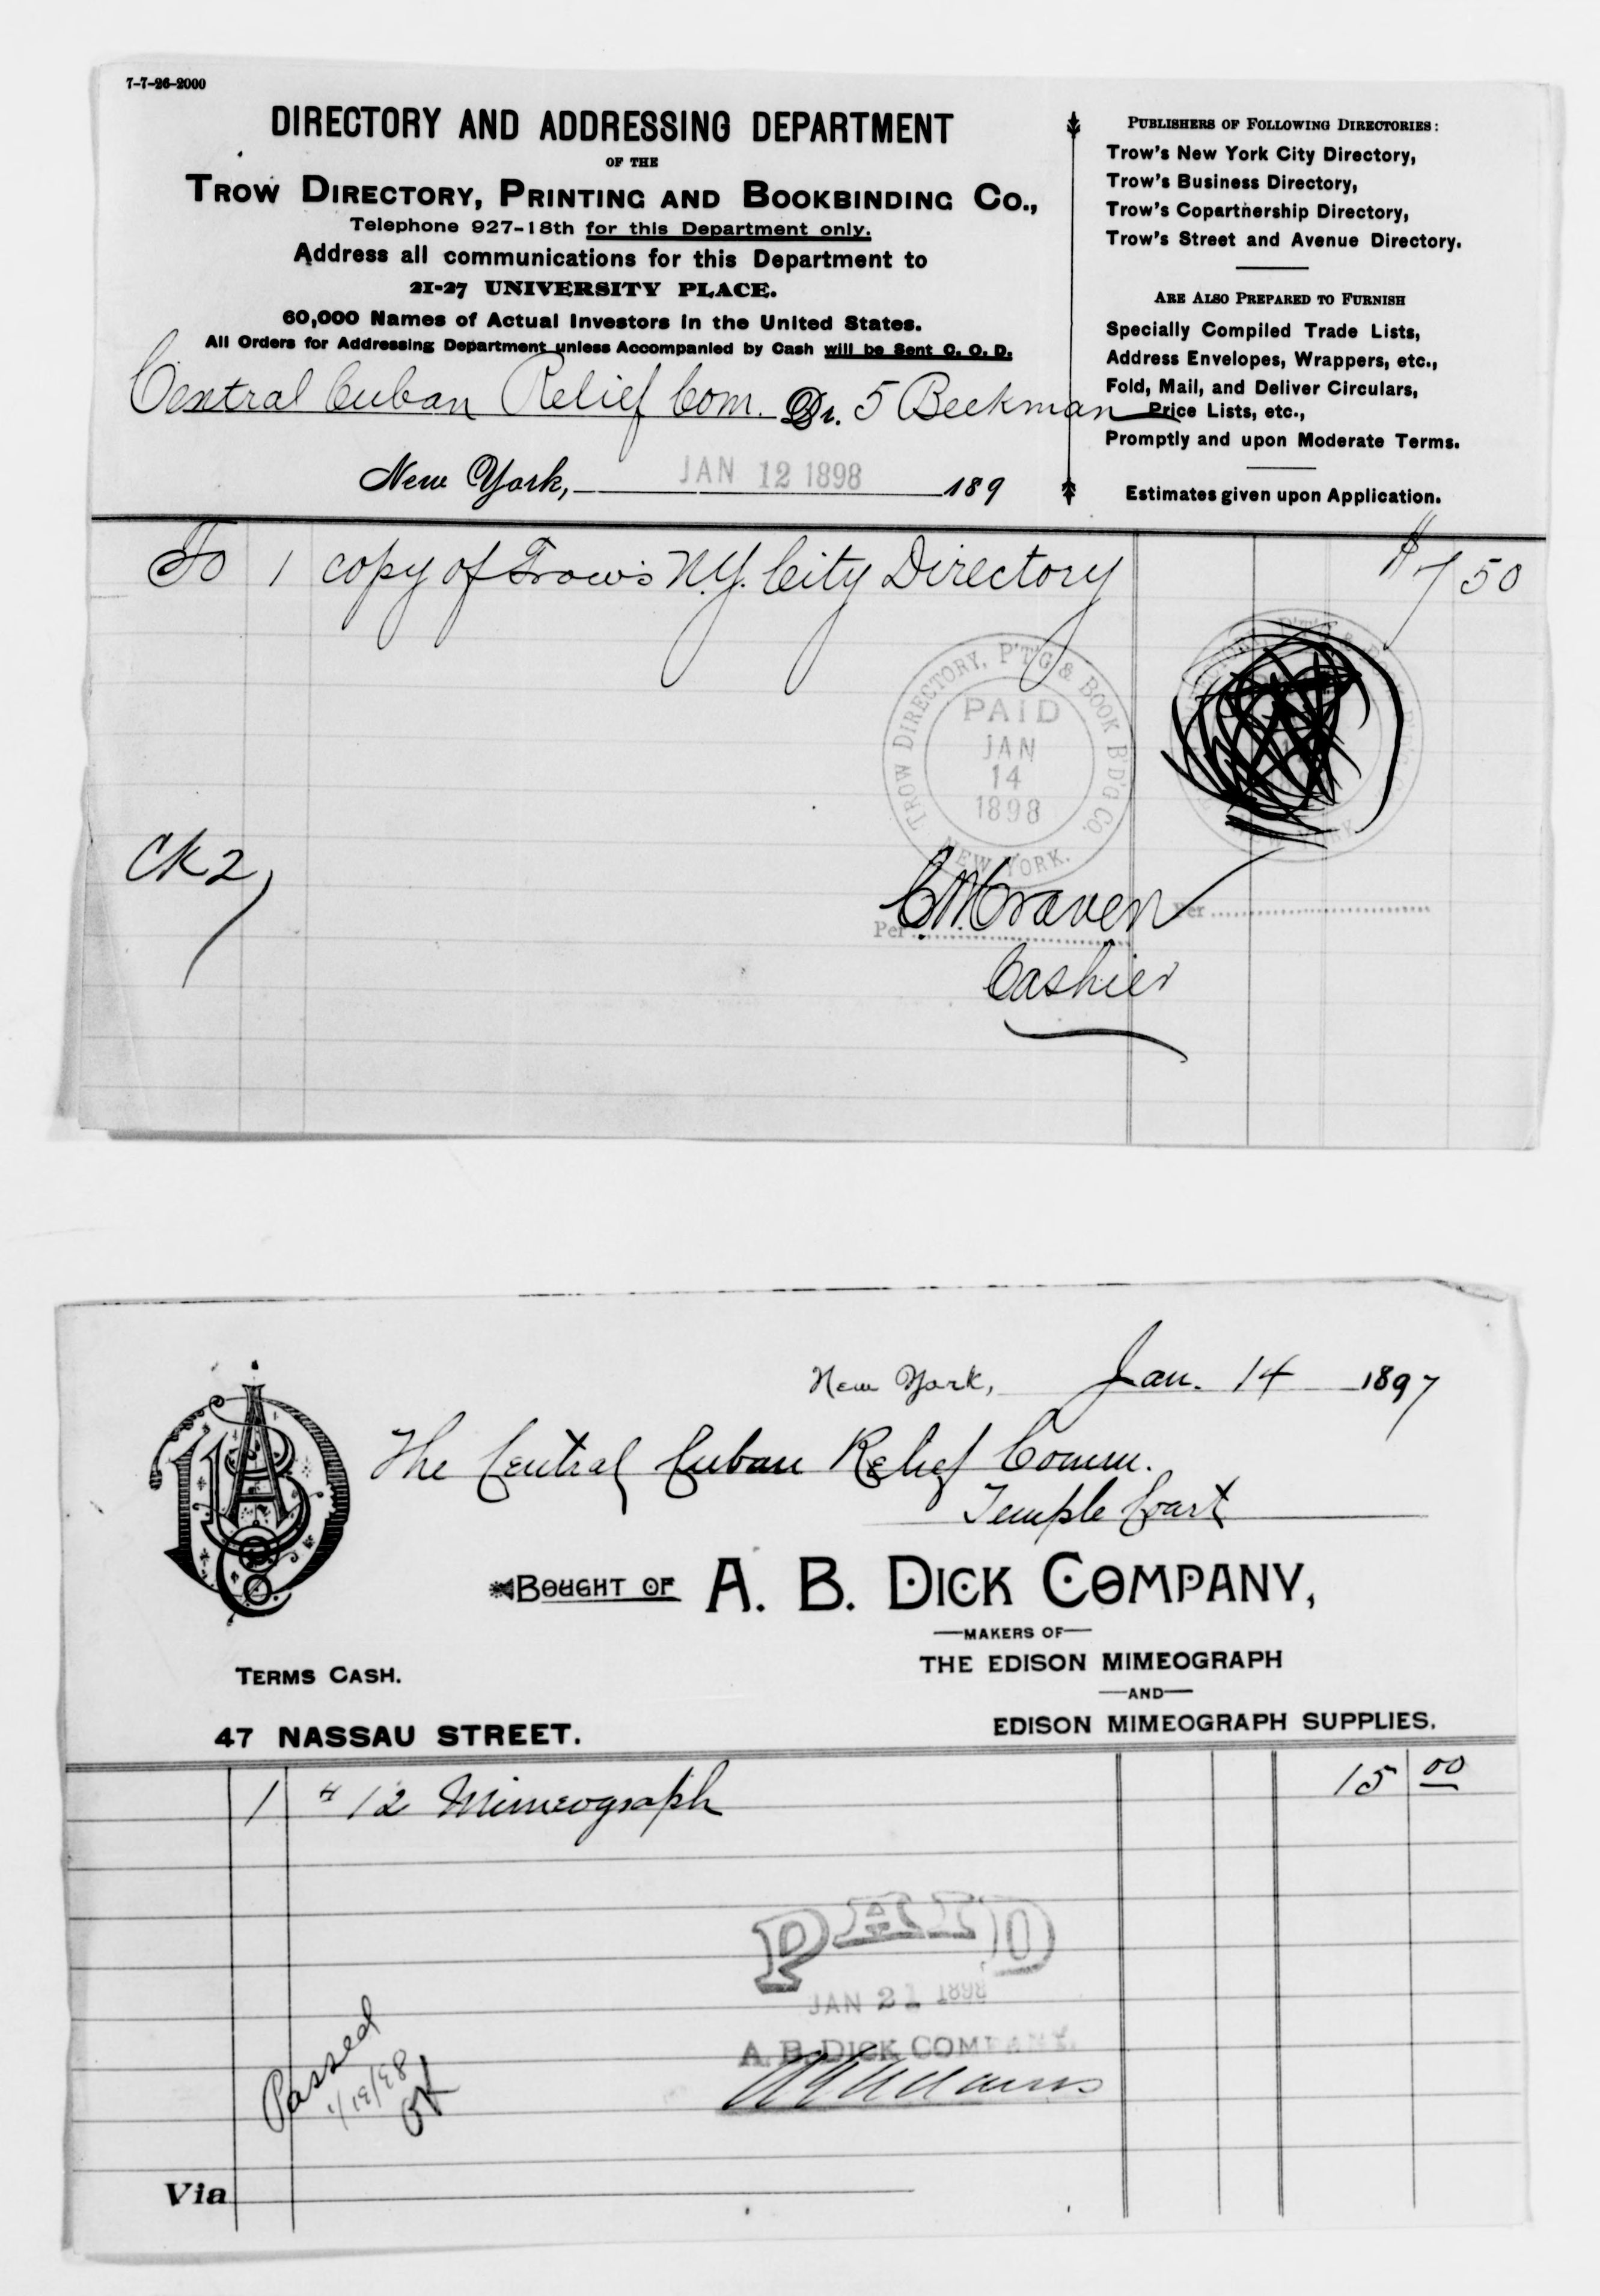 7-7-26-2000
DIRECTORY AND ADDRESSING DEPARTMENT
OF THE
TROW DIRECTORY, PRINTING AND BOOKBINDING CO.,
Telephone 927-18th for this Department only.
Address all communications for this Department to
21-27 UNIVERSITY PLACE.
60,000 Names of Actual Investors in the United States.
All Orders for Addressing Department unless Accompanied by Cash will be Sent C. O. D.
Central Cuban Relief Com. Dr. 5 Beekman
New York, JAN 12 1898 189
PUBLISHERS OF FOLLOWING DIRECTORIES:
Trow's New York City Directory,
Trow's Business Directory,
Trow's Copartnership Directory,
Trow's Street and Avenue Directory.
ARE ALSO PREPARED TO FURNISH
Specially Compiled Trade Lists,
Address Envelopes, Wrappers, etc.,
Fold, Mail, and Deliver Circulars,
Price Lists, etc.,
Promptly and upon Moderate Terms.
Estimates given upon Application.
To 1 copy of Trow's N.Y. City Directory $7 50
TROW DIRECTORY, P'T'G & BOOK B'D'G CO.
PAID
JAN
14
1898
NEW YORK.
CK 2
Per C M Craven
Per
Cashier
New York, Jan. 14 1897
The Central Cuban Relief Comm.
Temple Court
BOUGHT OF A. B. DICK COMPANY,
MAKERS OF
THE EDISON MIMEOGRAPH
AND
EDISON MIMEOGRAPH SUPPLIES.
TERMS CASH.
47 NASSAU STREET.
1 # 12 Mimeograph 15 00
PAID
JAN 21 1898
A. B. DICK COMPANY.
Adams
Passed
1/19/98
OK
Via